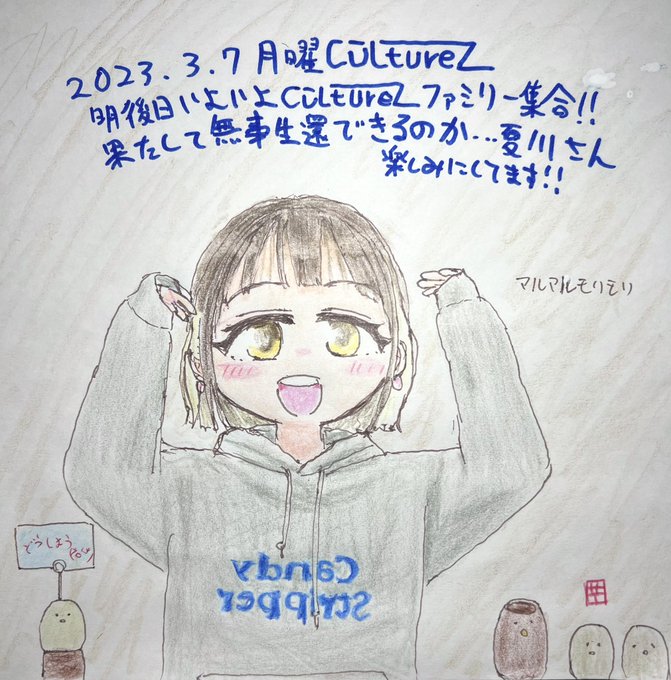 2023.3.7 月曜CultureZ
明後日いよいよCultureZファミリー集合!!
果たして無事生還できるのか...夏川さん
楽しみにしてます!!
マルマルモリモリ
どうしよう
Candy
Stripper